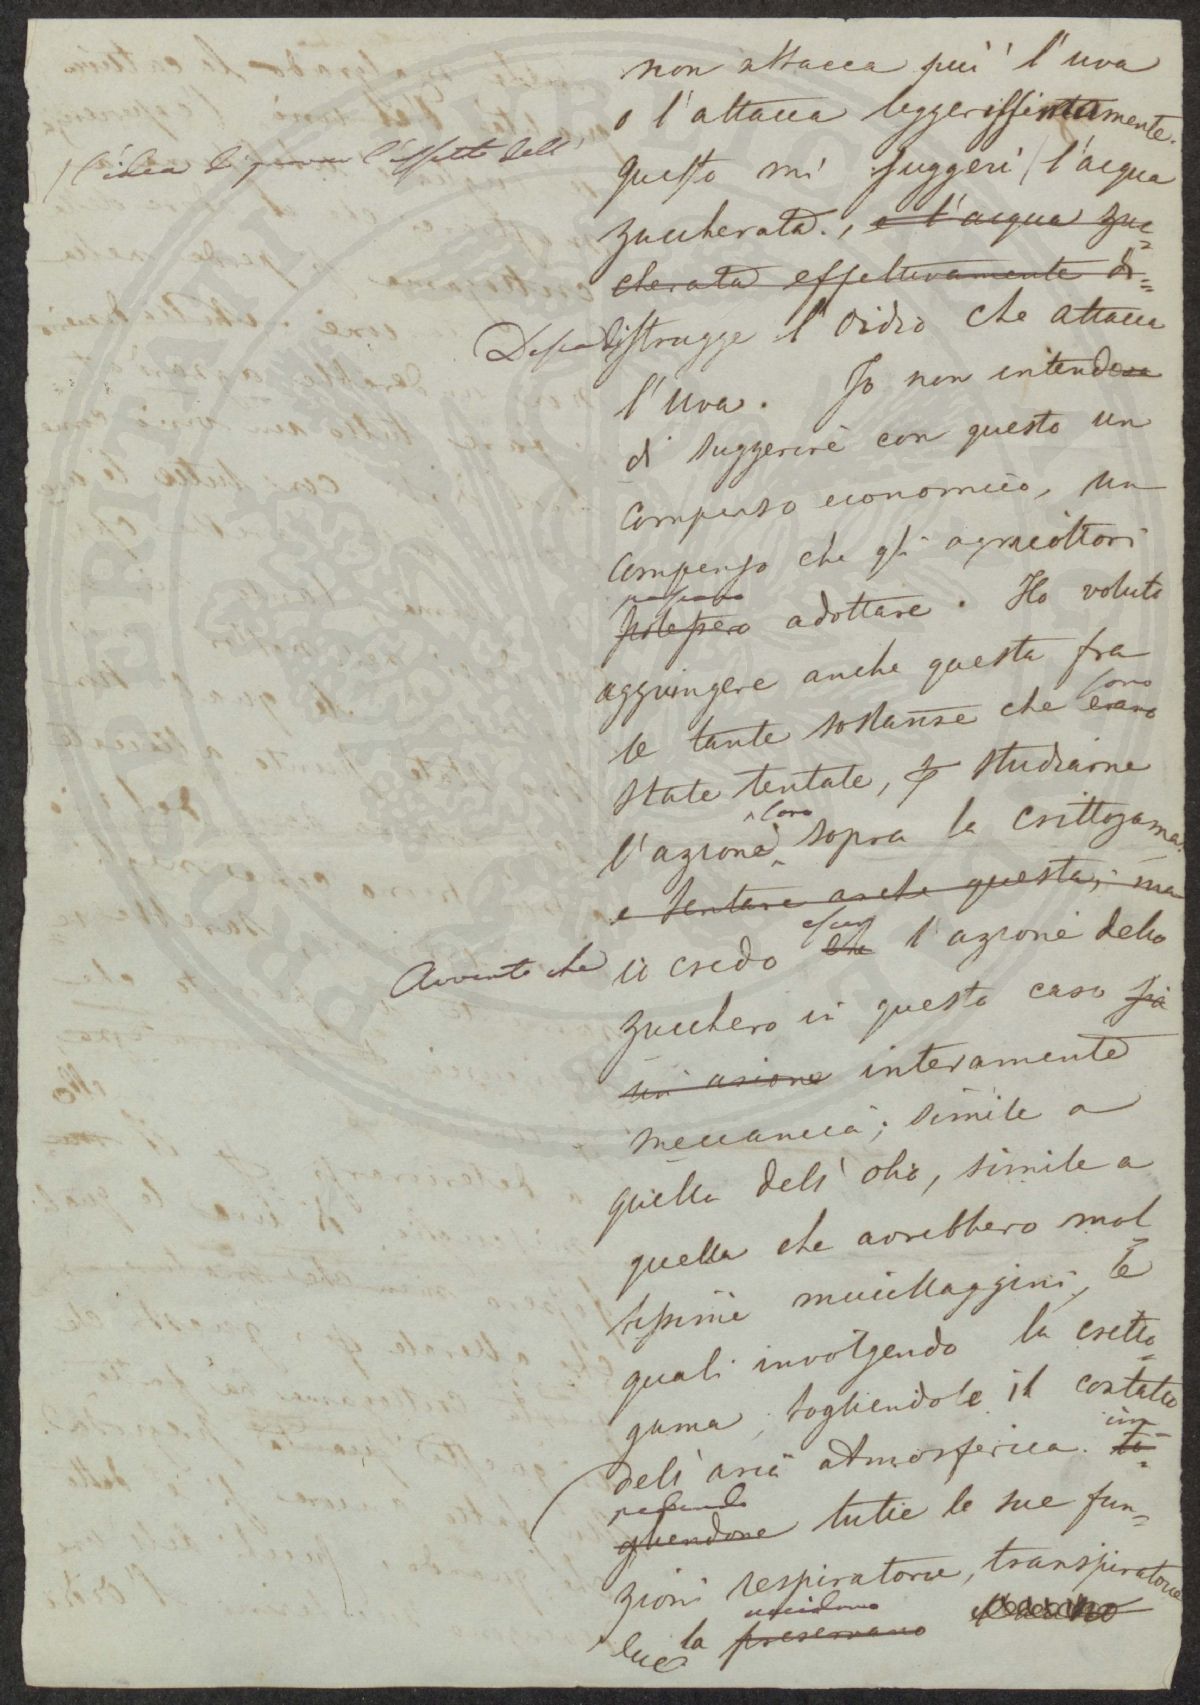 non attacca più l'uva
o l'attacca leggerissimamente.
l'idea di provar l'effetto dell'
questo mi suggerì l'acqua
zuccherata., e l'acqua zuc-
cherata effettivamente di=
strugge l'oidio che attacca
l'uva. Io non intendeva
di suggerire con questo un
compenso economico, un
compenso che gli agricoltori
possano
potessero adottare. Ho voluto
aggiungere anche questa fra
sono
le tante sostanze che erano
state tentate, studiarne
loro
l'azione sopra la crittogama.
e tentare anche questa; ma
Avverto che
io credo che l'azione dello
zucchero in questo caso sia
un azione interamente
meccanica; simile a
quella dell'olio, simile a
quella che avrebbero mol
tissime mucillaggini, le
quali involgendo la critto-
gama, togliendole il contatto
im-
dell'aria atmosferica. to-
pedendo
gliendone tutte le sue fun-
zioni respiratorie, transpiratorie
uccidono
la preservano